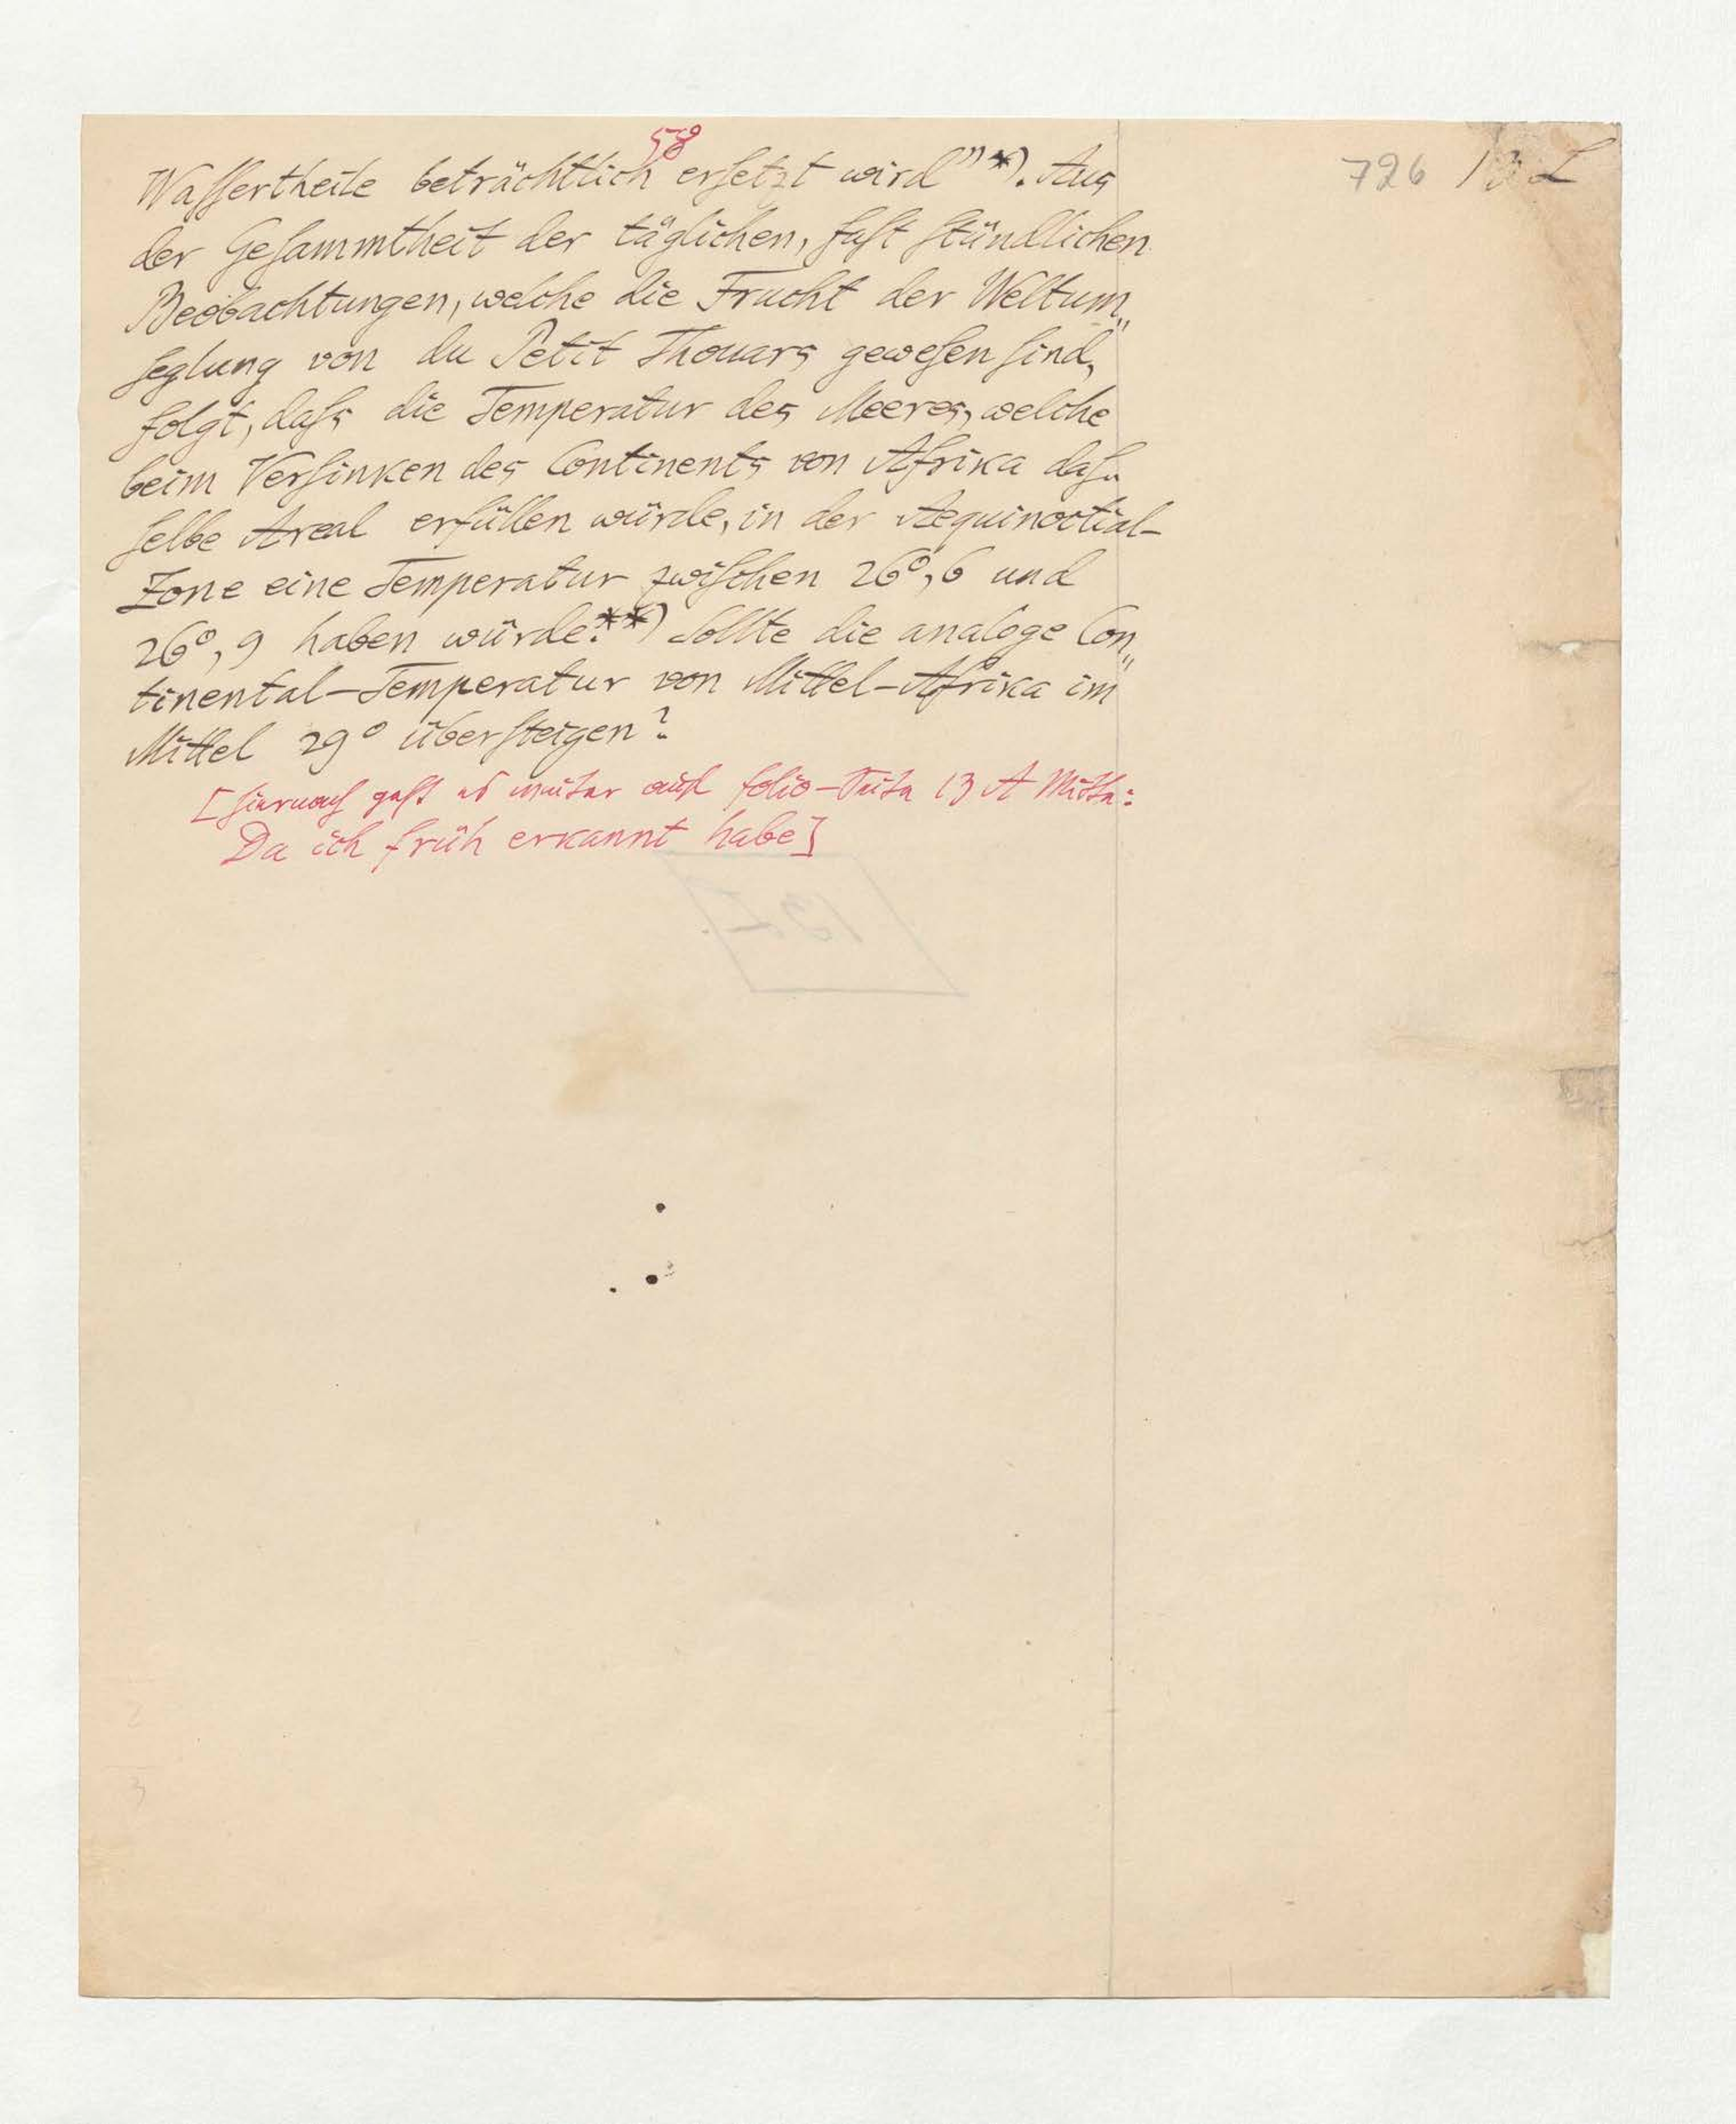 58
726 13 L
Waſſertheile beträchtlich erſetzt wird" *). Aus
der Geſammtheit der täglichen, faſt ſtündlichen
Beobachtungen, welche die Frucht der Weltum„
ſeglung von du Petit Thouars geweſen ſind,
folgt, daſs die Temperatur des Meeres, welche
beim Verſinken des Continents von Afrika daſ„
ſelbe Areal erfüllen würde, in der Aequinoctial-
Zone eine Temperatur zwiſchen 26°,6 und
26°,9 haben würde.**) Sollte die analoge Con„
tinental-Temperatur von Mittel-Afrika im
Mittel 29° überſteigen?
[Hiernach geht es weiter auf folio-Seite 13 A Mitte:
Da ich früh erkannt habe]